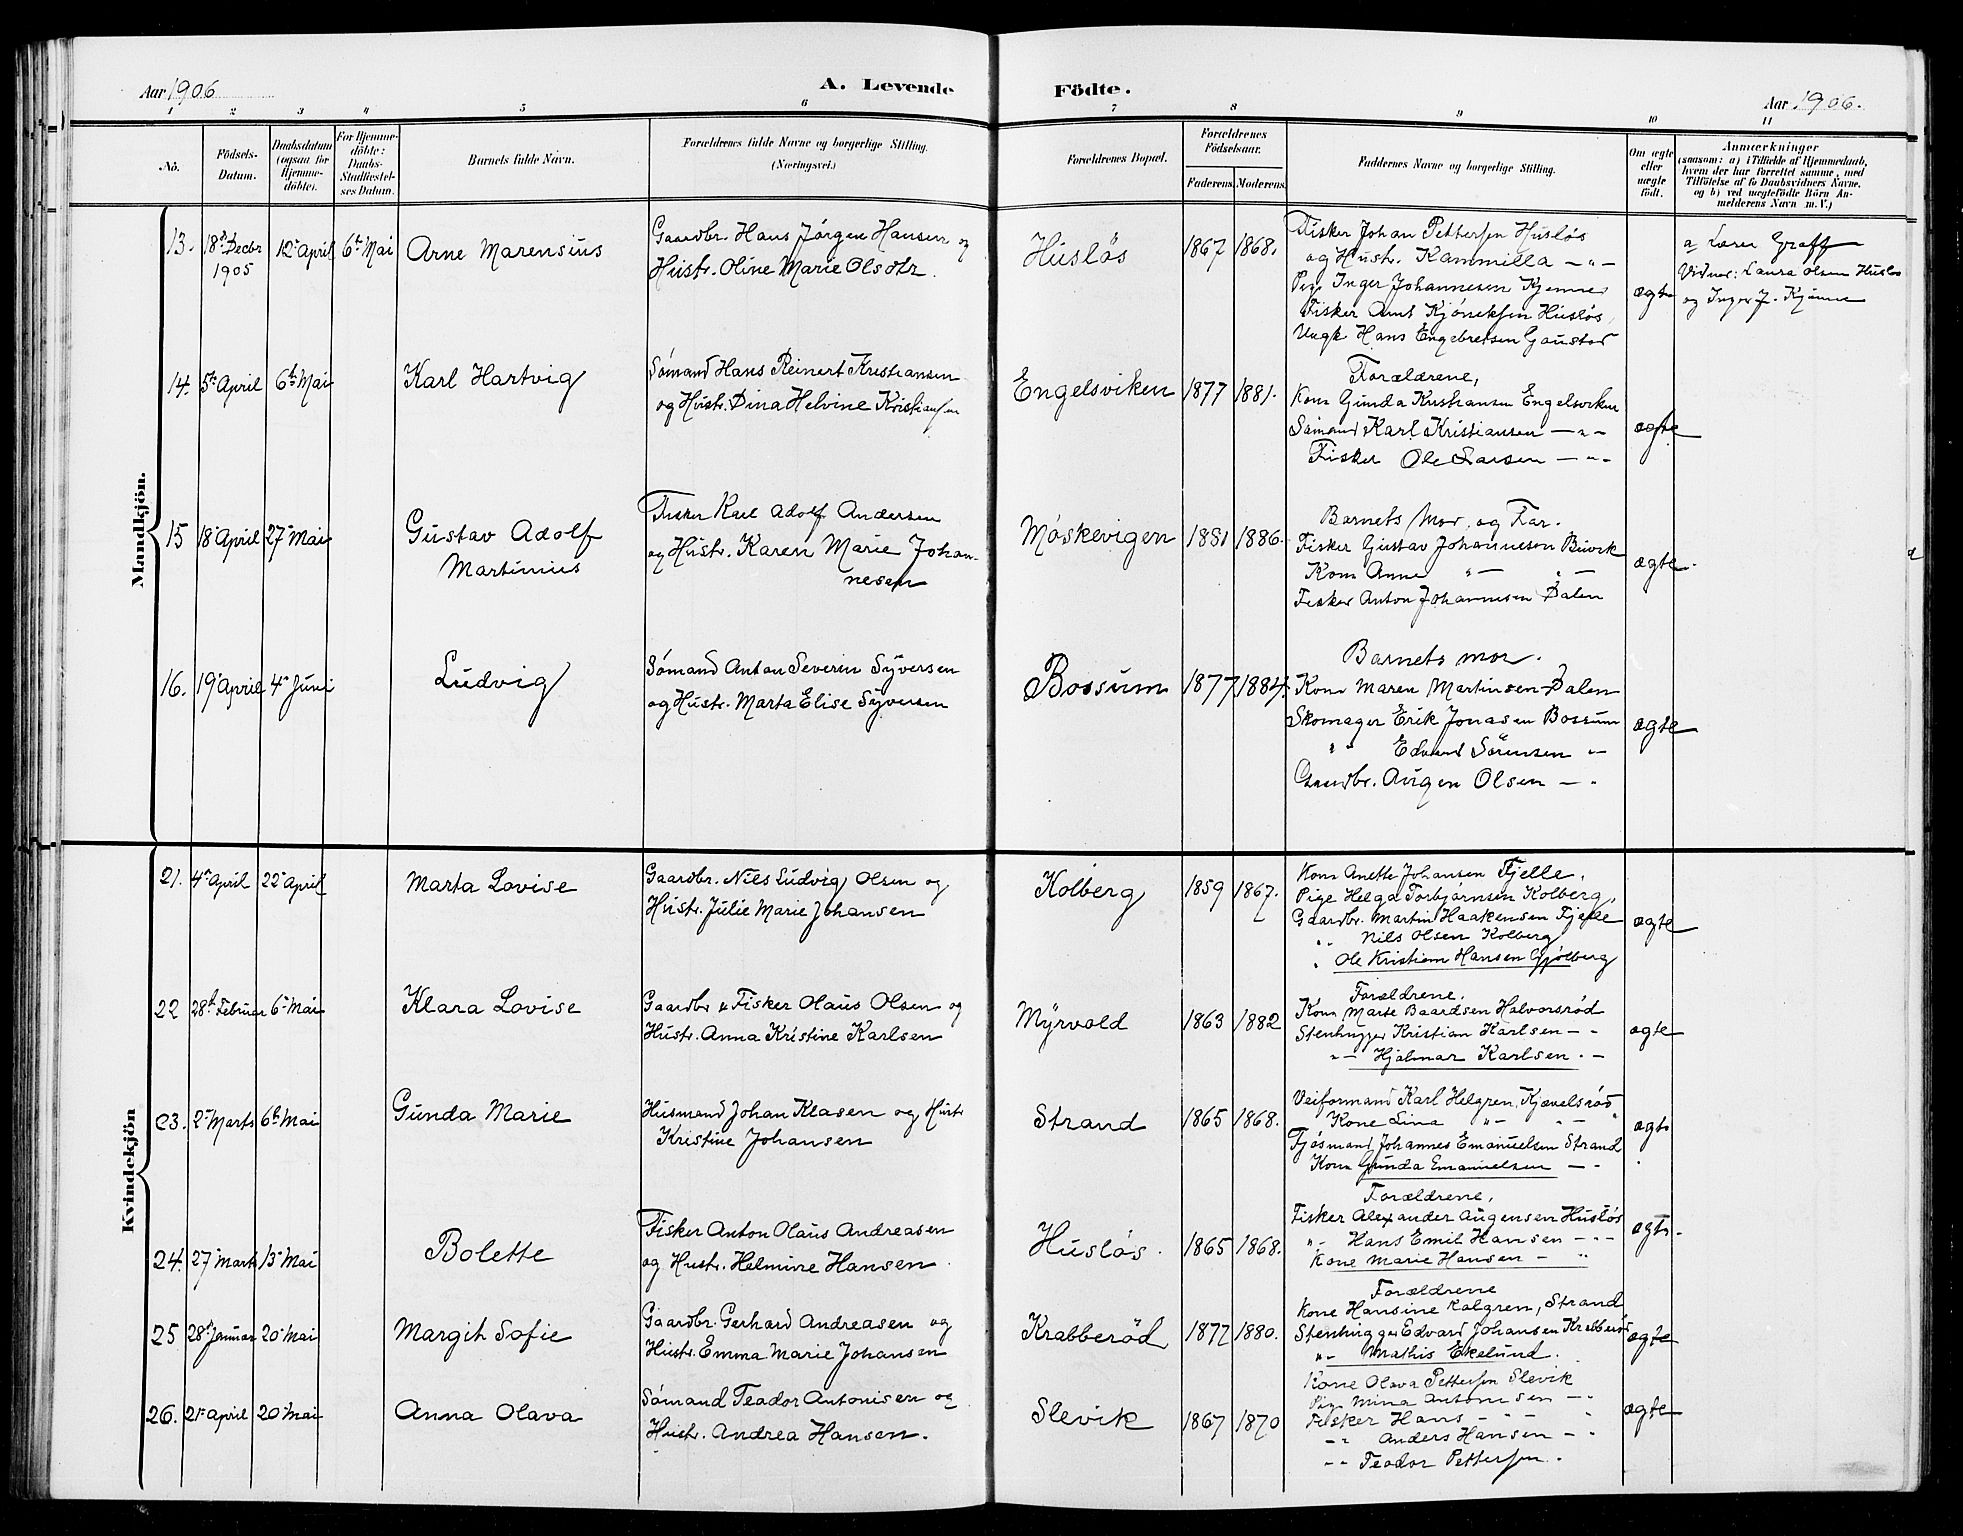 Aar 1906
A. Levende
Födte.
Aar 1906.
1 2 3 4 5 6 7 8 9 10 11
No.
Födsels-
Datum.
Daabsdatum
(ogsaa for
Hjemme-
döbte).
For Hjemme-
döbte:
Daabs-
Stadfæstel-
ses Datum.
Barnets fulde Navn.
Forældrenes fulde Navne og borgerlige Stilling.
(Næringsvei.)
Forældrenes Bopæl.
Forældrenes
Födselsaar.
Faderens. Moderens.
Faddernes Navne og borgerlige Stilling.
Om ægte
eller
uægte
födt.
Anmærkninger
(saasom: a) i Tilfælde af Hjemmedaab,
hvem der har forrettet samme, med
Tilföielse af to Daabsvidners Navne,
og b) ved uægtefödte Börn An-
melderens Navn m. V.)
Mandkjön.
13. 18de Decbr 1905 12te April 6te Mai Arne Marensius
Gaardbr. Hans Jörgen Hansen og
Hustr. Oline Marie Olsdtr.
Huslös 1867 1868.
Fisker Johan Pettersen Huslös
og Hustr. Kammilla — " —
Pige Inger Johannesen Kjenne
Fisker Amt Huslös,
Ungk Hans Engebretsen Gaustad
ægte
a Loren Graff
Vidner: Laura Olsen Huslös
og Inger J. Kjenne
14. 5te April 6te Mai Karl Hartvig
Sömand Hans Reinert Kristiansen
og Hustr. Dina Helvine Kristiansen
Engelsviken 1877 1881.
Forældrene,
Kone Gunda Kristiansen Engelsviken
Sömand Karl Kristiansen — " —
Fisker Ole Larsen — " —
ægte
15 18 April 27 Mai Gustav Adolf
Martinius
Fisker Karl Adolf Andersen
og Hustr. Karen Marie Johan-
nesen
Möskevigen 1881 1886.
Barnets Mor og Far.
Fisker Gustav Johannesen
Kone Anne " — " —
Fisker Anton Johannesen Dalen
ægte.
16. 19 April 4 Juni Ludvig
Sömand Anton Severin Syversen
og Hustr. Marta Elise Syversen
Bossum 1877 1884.
Barnets mor.
Kone Maren Martinsen Dalen
Skomager Erik Jonasen Bossum
" Edvard Sörensen "
Gaardbr. Augen Olsen — "
ægte
Kvindekjön
21. 4 April 22 April Marta Lovise
Gaardbr. Nils Ludvig Olsen og
Hustr. Julie Marie Johansen
Kolberg 1859 1867.
Kone Anette Johansen Fjelle,
Pige Helga Torbjörnsen Kolberg,
Gaardbr. Martin Haakensen Fjelle
" Nils Olsen Kolberg
" Ole Kristian Hansen Gjölberg
ægte
22 28de Februar 6 Mai Klara Lovise
Gaardbr & Fisker Olaus Olsen og
Hustr. Anna Kristine Karlsen
Myrvold 1863 1882
Forældrene.
Kone Marte Baardsen Halvorsröd
Stenhugger Kristian Karlsen — "
" — Hjalmar Karlsen. —
ægte
23. 2 Marts 6te Mai Gunda Marie
Husmand Johan Klasen og Hustr
Kristine Johansen
Strand 1865 1868.
Veiformand Karl Helgren, Kjævelsröd
Kone Lina " — " —
Tjösmand Johannes Emanuelsen Strand
Kone Gunda Emanuelsen — "
ægte
24. 27 Marts 13 Mai Bolette
Fisker Anton Olaus Andreasen
og Hustr. Helmine Hansen
Huslös. 1865 1868.
Forældrene,
Fisker Alexander Augensen Huslös
" Hans Emil Hansen — " —
Kone Marie Hansen — "
ægte.
25 28de Januar 20 Mai Margit Sofie
Gaardbr. Gerhard Andreasen og
Hustr. Emma Marie Johansen
Krabberöd 1877 1880.
Forældrene
Kone Hansine Kalgren, Strand
Stenhugger Edvard Johansen Krabberöd
" — Mathis Ekelund.
ægte
26. 21 April 20 Mai Anna Olava
Sömand Teador Antonisen og
Hustr. Andrea Hansen.
Slevik 1867 1870
Kone Olava Pettersen Slevik
Pige Mina Antonisen — "
Fisker Hans — " — "
" Anders Hansen — "
" Teodor Pettersen.
ægte